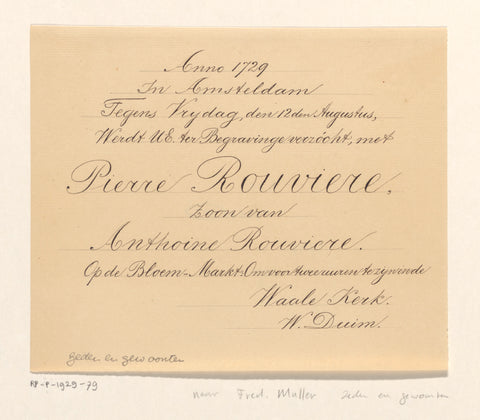 Anno 1729
In Amsteldam
Tegens Vrydag, den 12den Augustus,
Werdt UE. ter Begravinge verzòcht, met
Pierre Rouviere,
Zoon van
Anthoine Rouviere.
Op de Bloem-Markt. Om voor twee uuren te zyn, ende
Waale Kerk.
W. Duim.
Zeden en gewoonten
RP-P-1929-79
naar Fred. Muller zeden en gewoonten